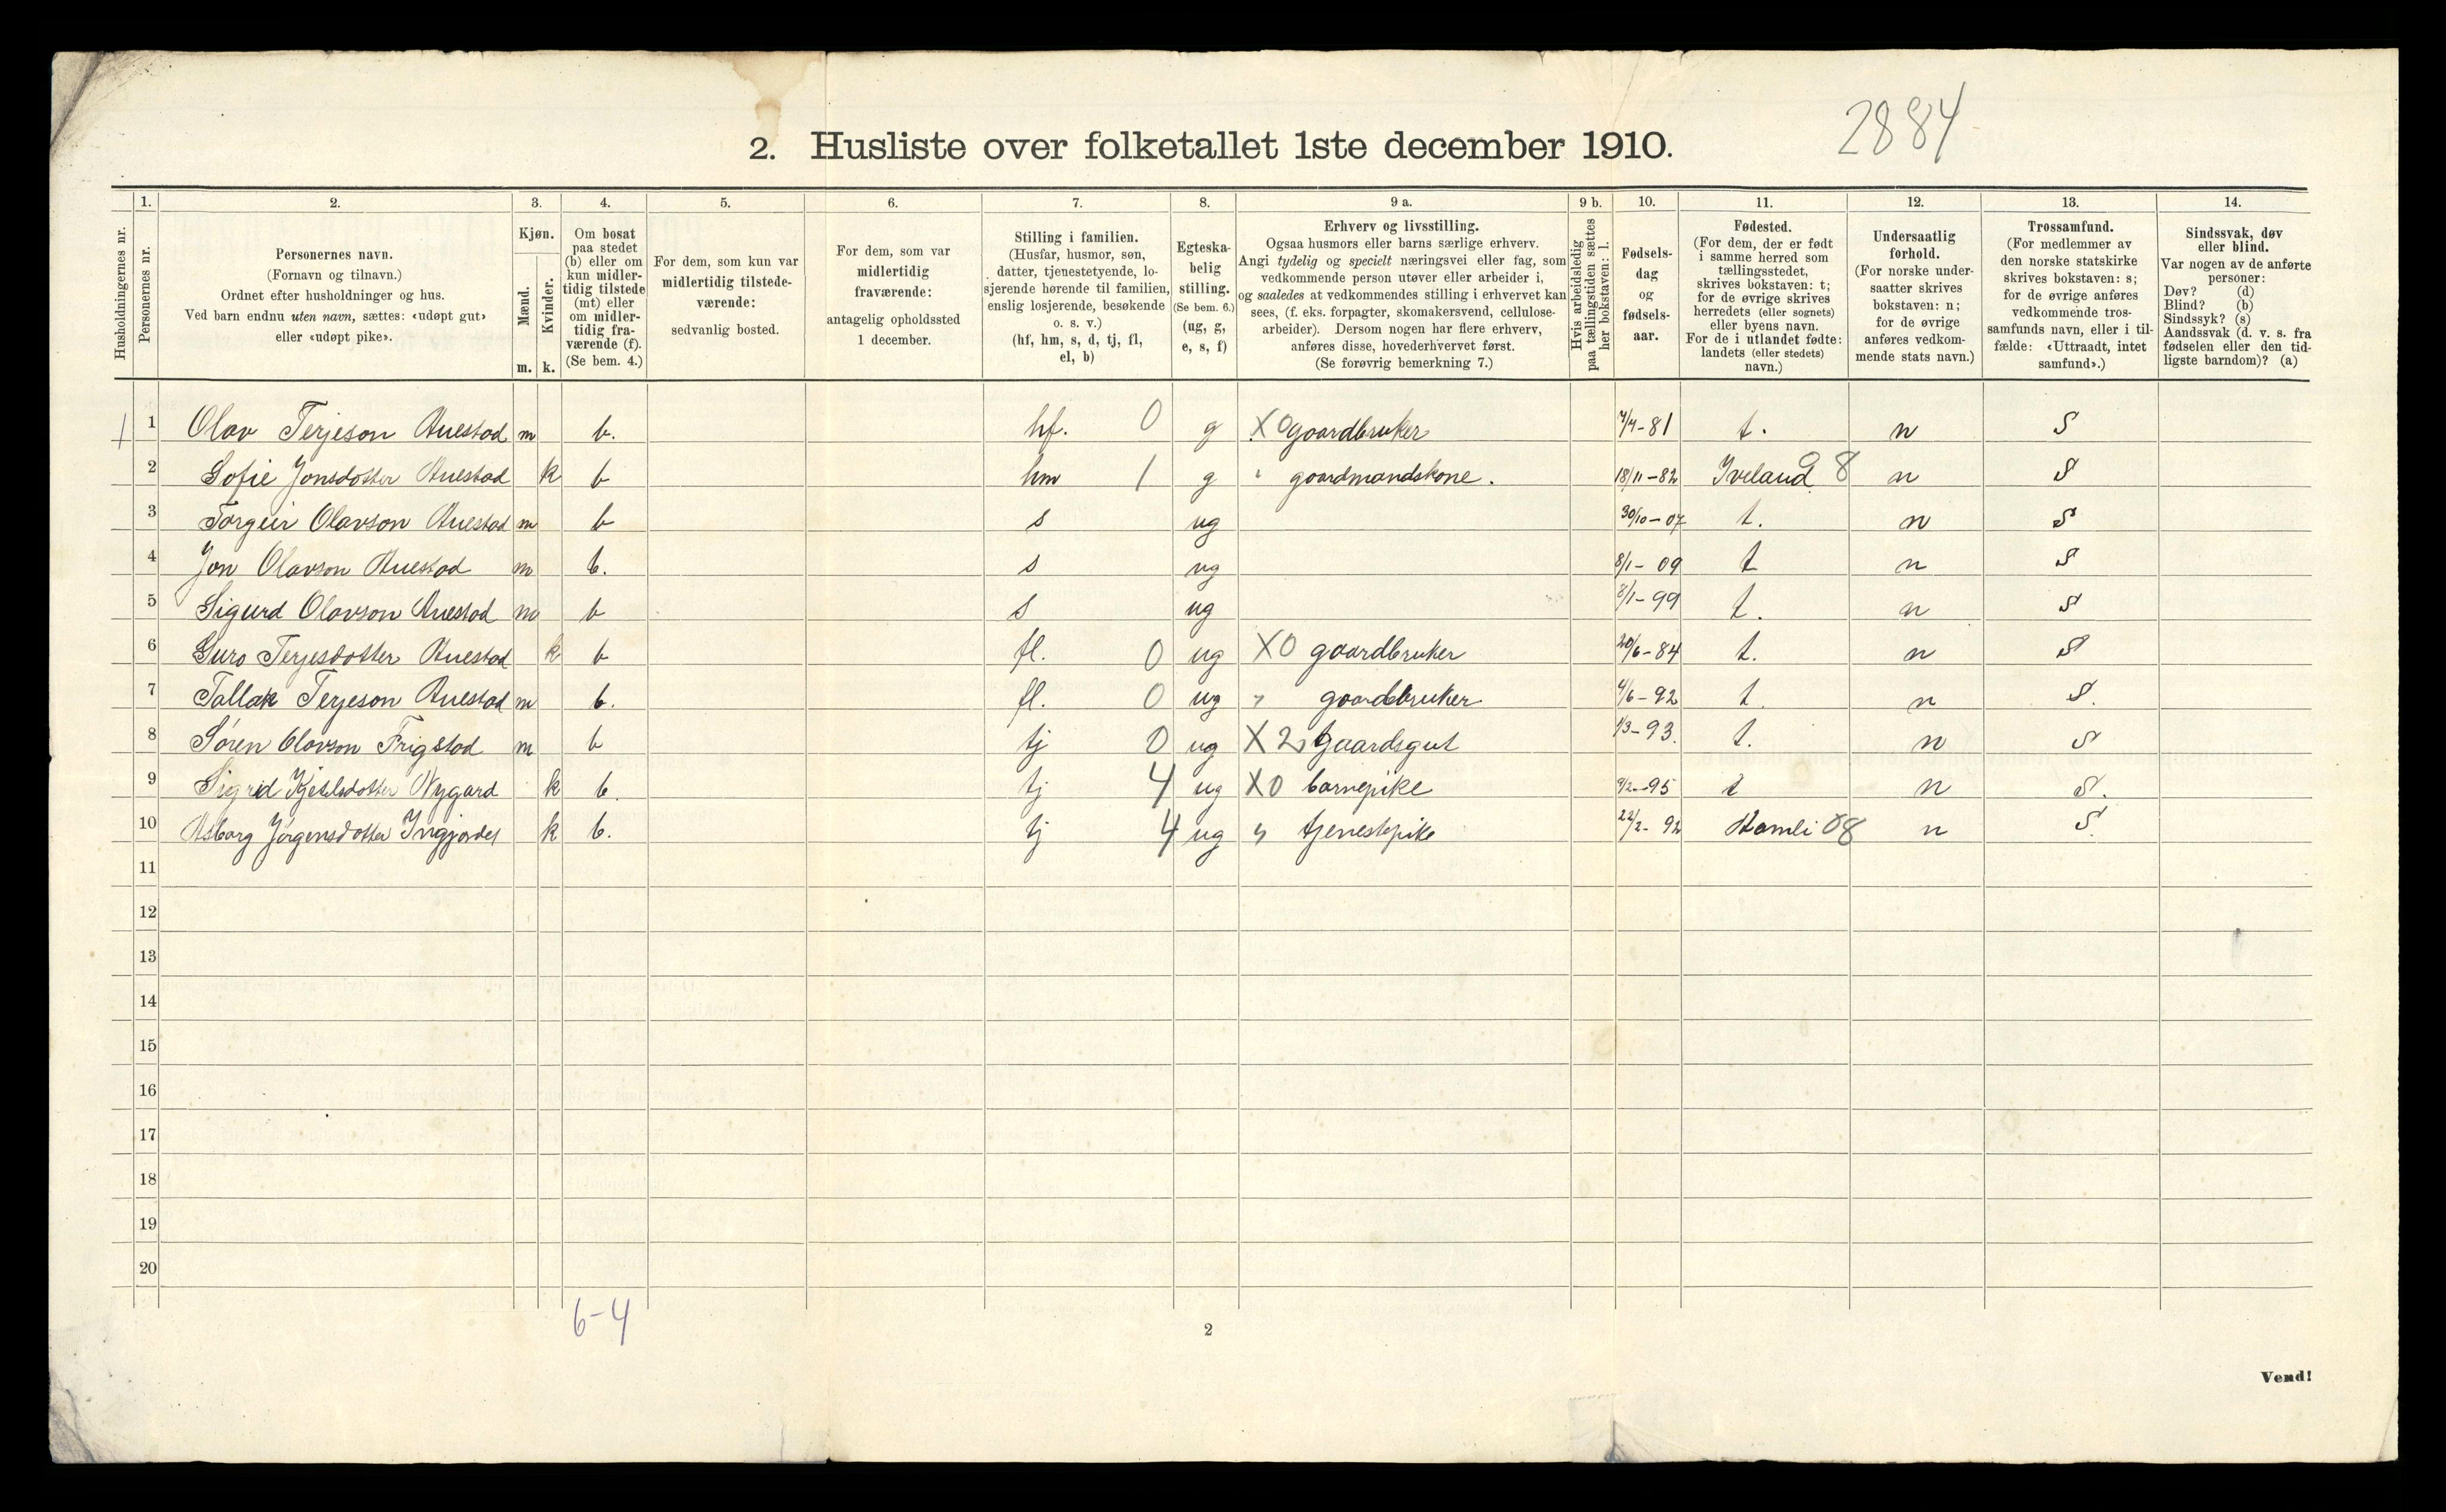 2884
2. Husliste over folketallet 1ste december 1910.
Husholdningernes nr.
1. Personernes nr.
2. Personernes navn. (Fornavn og tilnavn.) Ordnet efter husholdninger og hus. Ved barn endnu uten navn, sættes: «udøpt gut» eller «udøpt pike».
3. Kjøn. Mænd. m. Kvinder. k.
4. Om bosat paa stedet (b) eller om kun midlertidig tilstede (mt) eller om midlertidig fraværende (f). (Se bem. 4.)
5. For dem, som kun var midlertidig tilstedeværende: sedvanlig bosted.
6. For dem, som var midlertidig fraværende: antagelig opholdssted 1 december.
7. Stilling i familien. (Husfar, husmor, søn, datter, tjenestetyende, losjerende hørende til familien, enslig losjerende, besøkende o. s. v.) (hf, hm, s, d, tj, fl, el, b)
8. Egteskabelig stilling. (Se bem. 6.) (ug, g, e, s, f)
9 a. Erhverv og livsstilling. Ogsaa husmors eller barns særlige erhverv. Angi tydelig og specielt næringsvei eller fag, som vedkommende person utøver eller arbeider i, og saaledes at vedkommendes stilling i erhvervet kan sees, (f. eks. forpagter, skomakersvend, cellulosearbeider). Dersom nogen har flere erhverv, anføres disse, hovederhvervet først. (Se forøvrig bemerkning 7.)
9 b. Hvis arbeidsledig paa tællingstiden sættes her bokstaven: l.
10. Fødselsdag og fødselsaar.
11. Fødested. (For dem, der er født i samme herred som tællingsstedet, skrives bokstaven: t; for de øvrige skrives herredets (eller sognets) eller byens navn. For de i utlandet fødte: landets (eller stedets) navn.)
12. Undersaatlig forhold. (For norske undersaatter skrives bokstaven: n; for de øvrige anføres vedkommende stats navn.)
13. Trossamfund. (For medlemmer av den norske statskirke skrives bokstaven: s; for de øvrige anføres vedkommende trossamfunds navn, eller i tilfælde: «Uttraadt, intet samfund».)
14. Sindssvak, døv eller blind. Var nogen av de anførte personer: Døv? (d) Blind? (b) Sindssyk? (s) Aandssvak (d. v. s. fra fødselen eller den tidligste barndom)? (a)
1 1 Olav Terjeson Auestad m b. hf. 0 g X0 gaardbruker 7/4-81 t. n S
2 Sofie Jonsdotter Auestad k b hm 1 g " gaardmandskone. 18/11-82 Iveland 08 n S
3 Torgeir Olavson Auestad m b s ug 30/10-07 t. n S
4 Jon Olavson Auestad m b. s ug 8/1-09 t n S
5 Sigurd Olavson Auestad m b s ug /1-99 t. n S
6 Guro Terjesdotter Auestad k b fl. 0 ug X0 gaardbruker 20/6-84 t. n S
7 Tallak Terjeson Auestad m b. fl. 0 ug " gaardbruker 4/6-92 t. n S.
8 Søren Olavson Frigstad m b tj 0 ug X2 gaardsgut 1/3-93. t. n S
9 Sigrid Kjetilsdotter Nygard k b. tj 4 ug X0 barnepike 9/2-95 t n S.
10 Asborg Jørgensdotter k b. tj 4 ug " tjenestepike 22/2-92 Hamli 08 n S.
11
12
13
14
15
16
17
18
19
20
6-4
2
Vend!